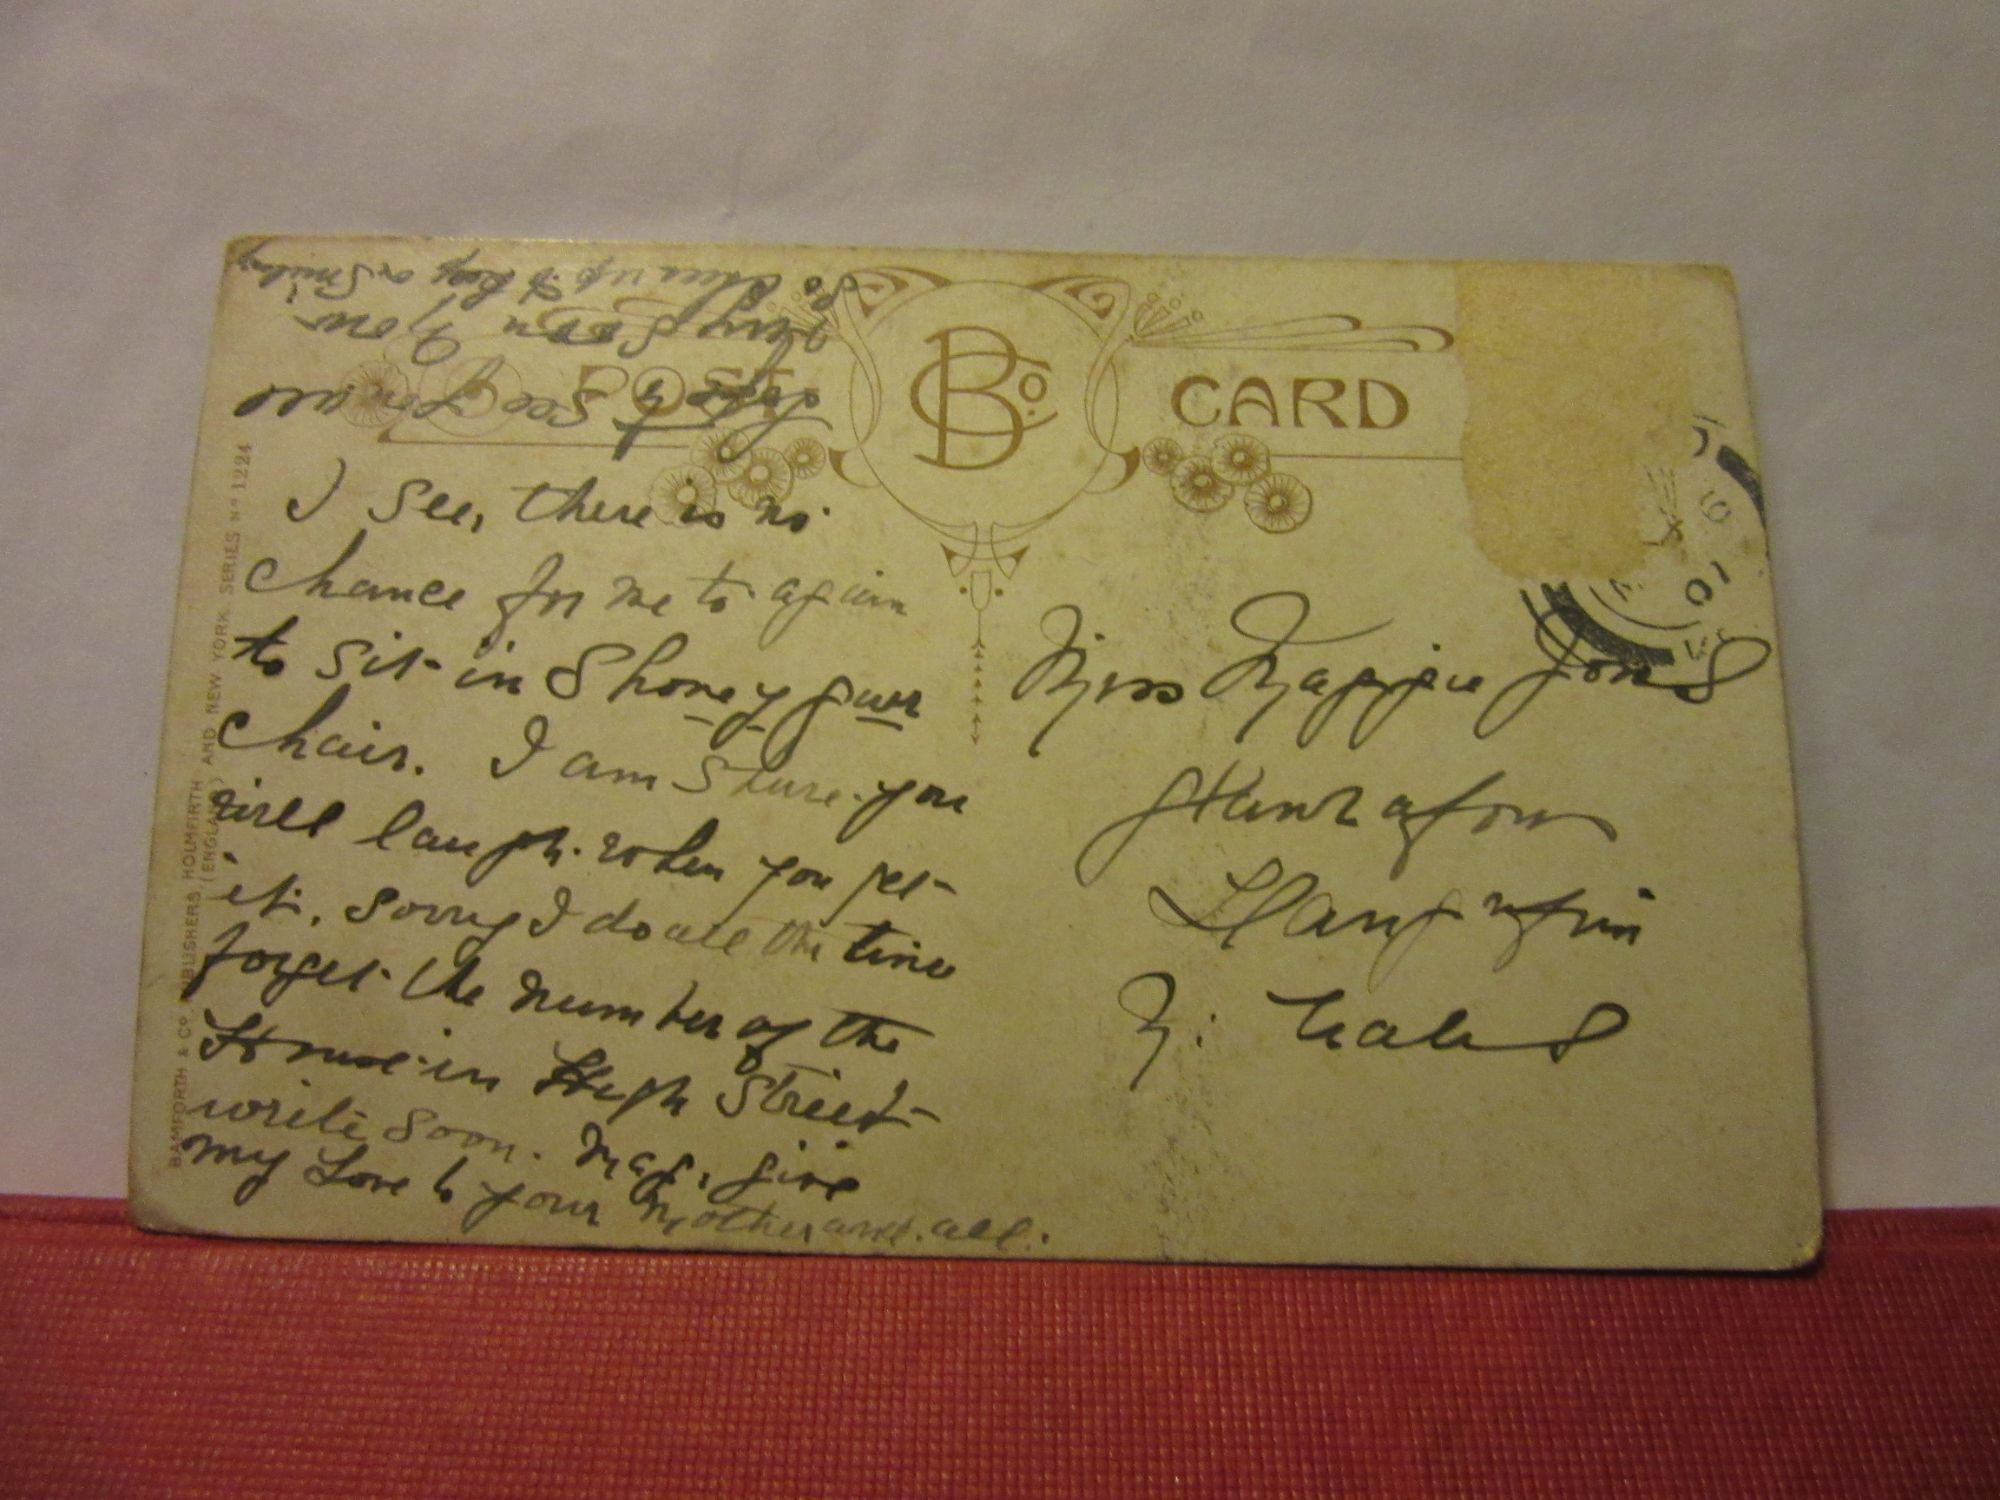 POST CARD
B Co.
I see, there is no
chance for me to again
to sit in Shoney guer
chair. I am Shure you
will laugh when you get
it, sorry I do all the time
forget the number of the
House in High Street
write soon. Mag, give
my Love to your Mother and all.
Hope to See You all
Very Soon Now
So Cheer up & keep on Smiling
Miss Maggie Jones
N. Wales
BAMFORTH & Co. PUBLISHERS, HOLMFIRTH (ENGLAND) AND NEW YORK. SERIES No 1224
10